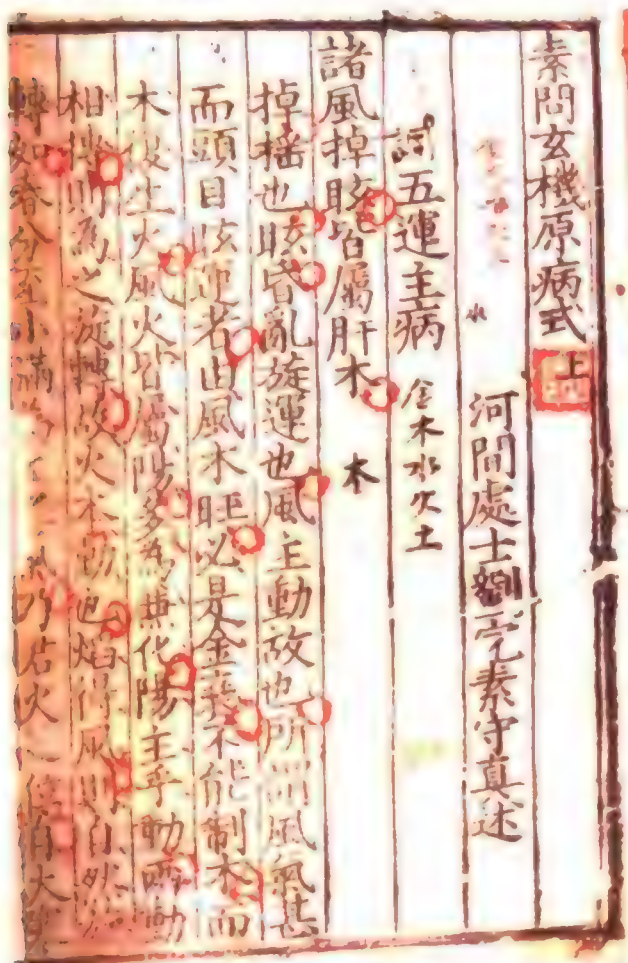 素問玄機原病式 上
河間處士劉完素守真述
詞五運主病 金木水火土
諸風掉眩皆屬肝木 木
掉摇也眩昏亂旋運也風主動故也所謂風氣甚
而頭目眩運者由風木旺必是金衰不能制木而
木復生火風火皆屬陽多為兼化陽主乎動兩動
相摶則為之旋轉故火本動也焰得風則自然旋
轉如春分至小滿為 乃君火之位自大寒